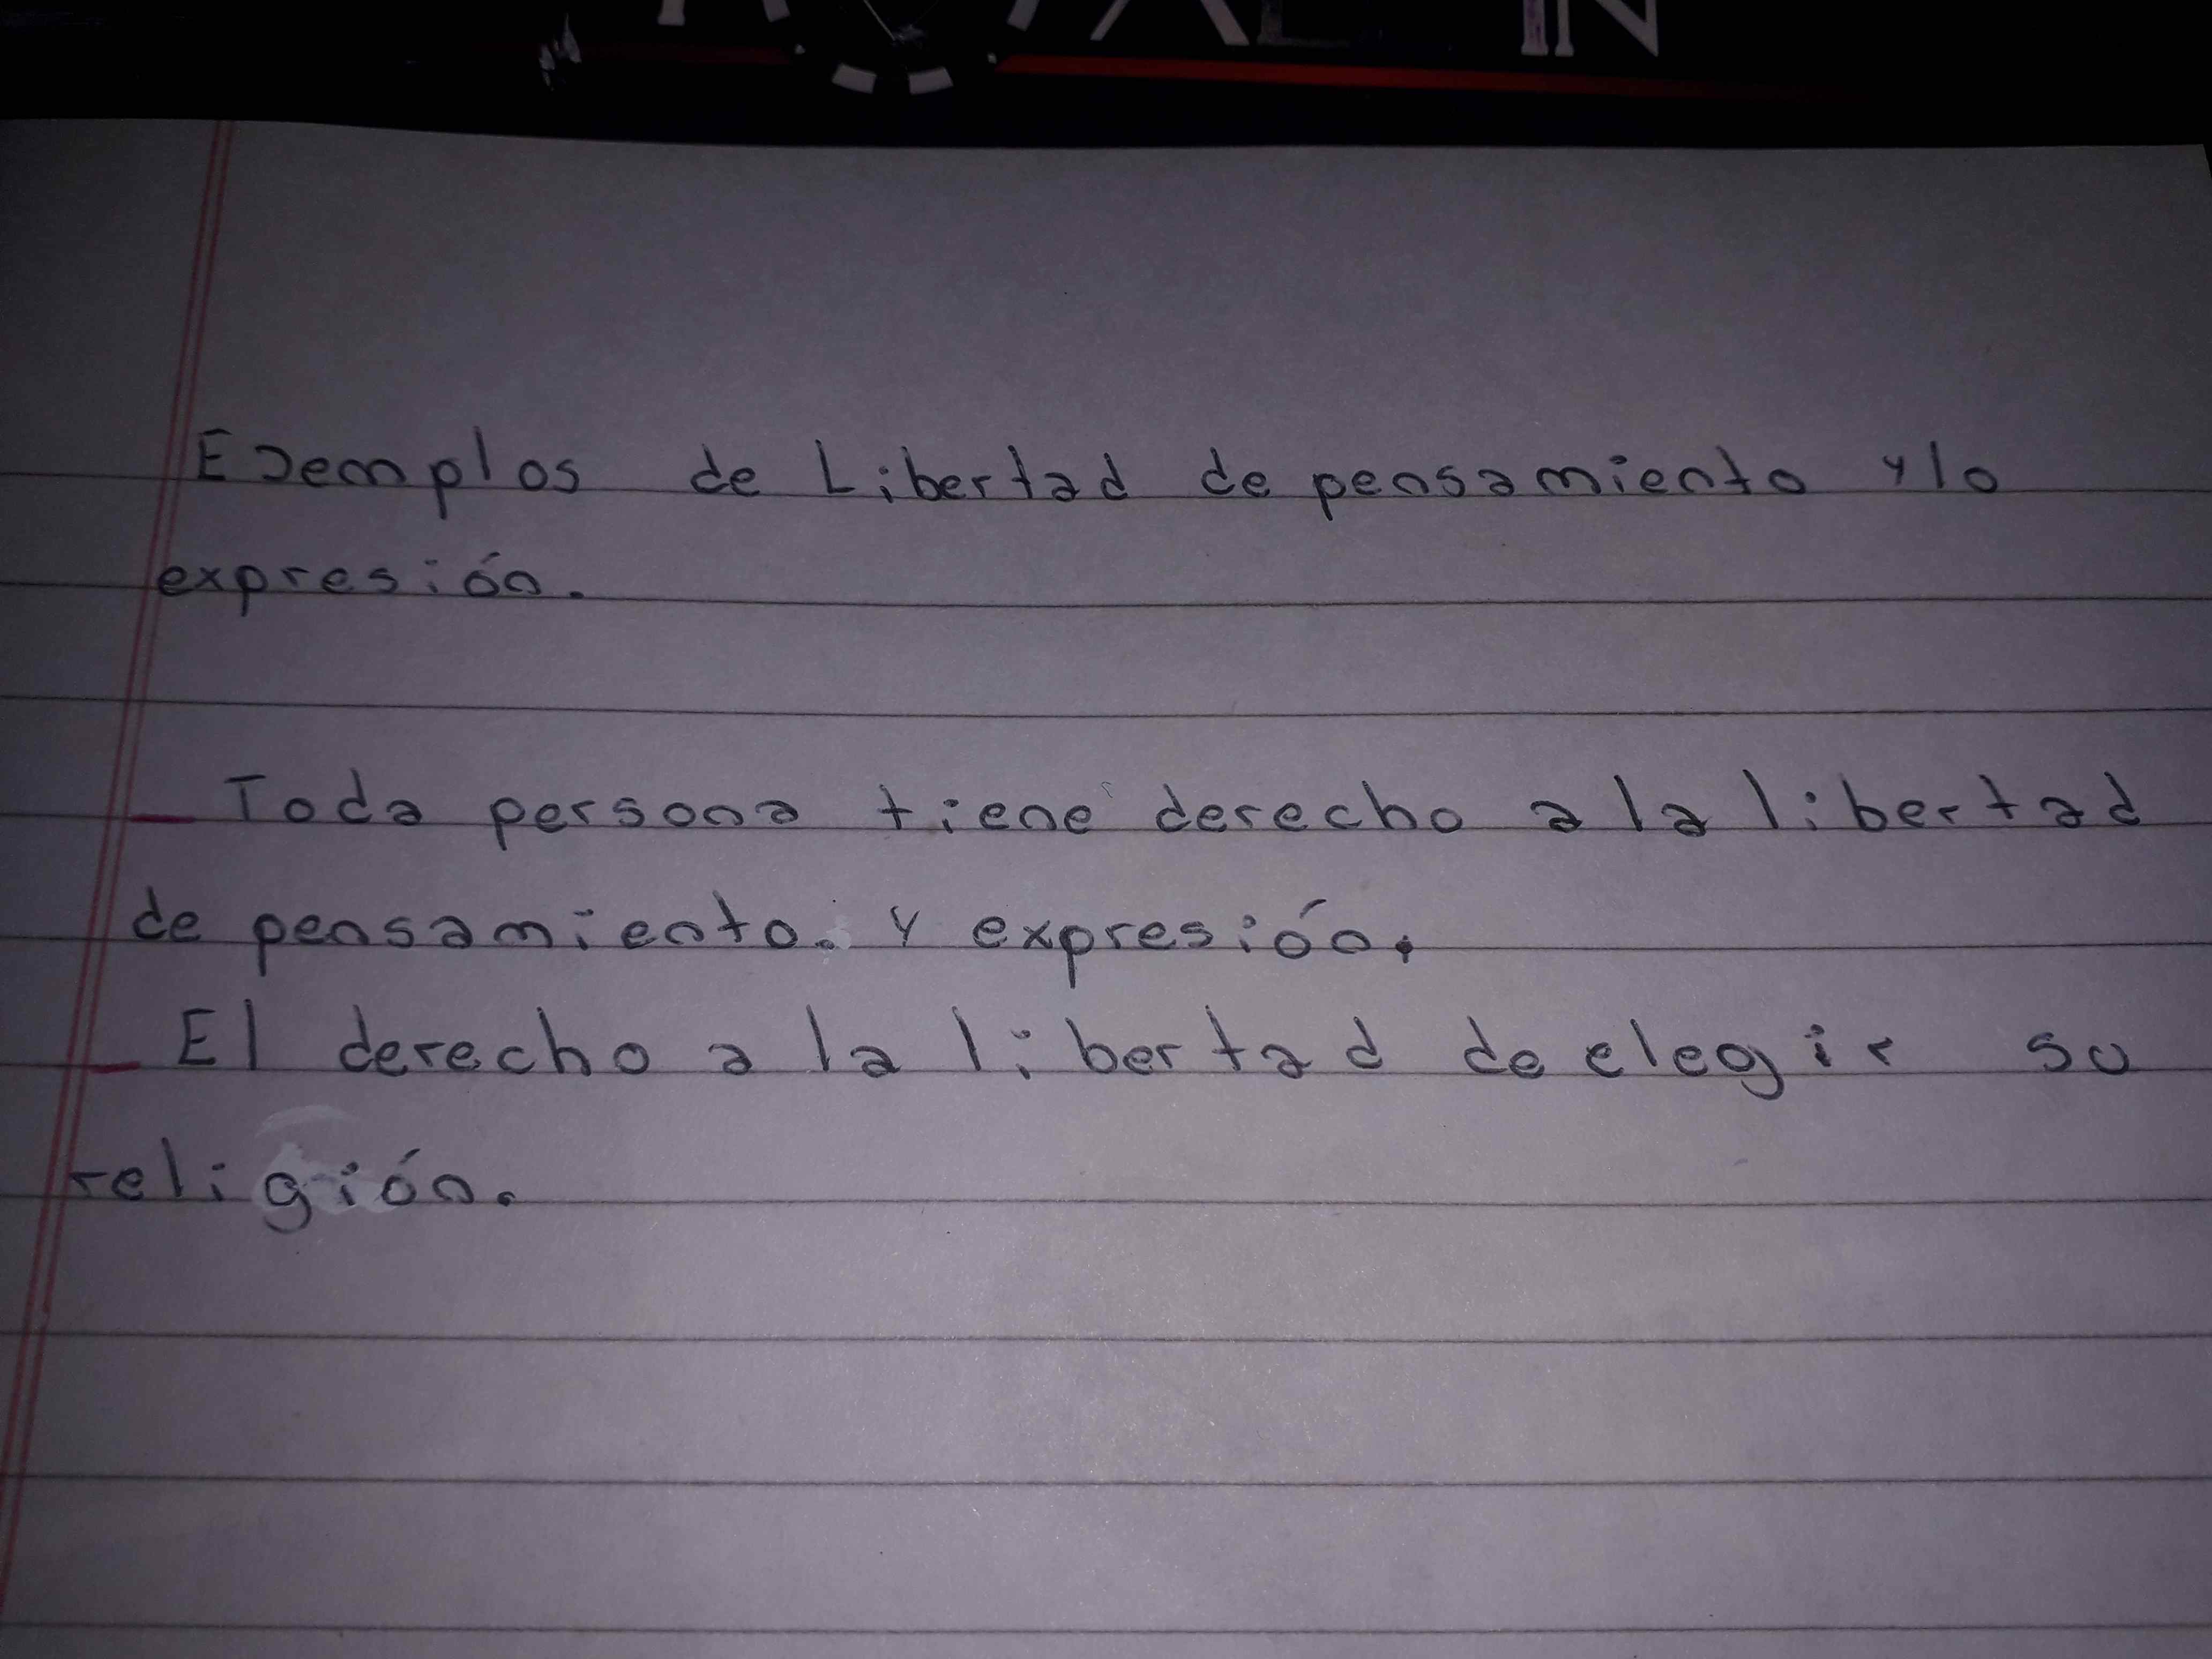 Ejemplos de Libertad de pensamiento y lo
expresión.
- Toda persona tiene derecho a la libertad
de pensamiento. y expresión.
- El derecho a la libertad de elegir su
religión.